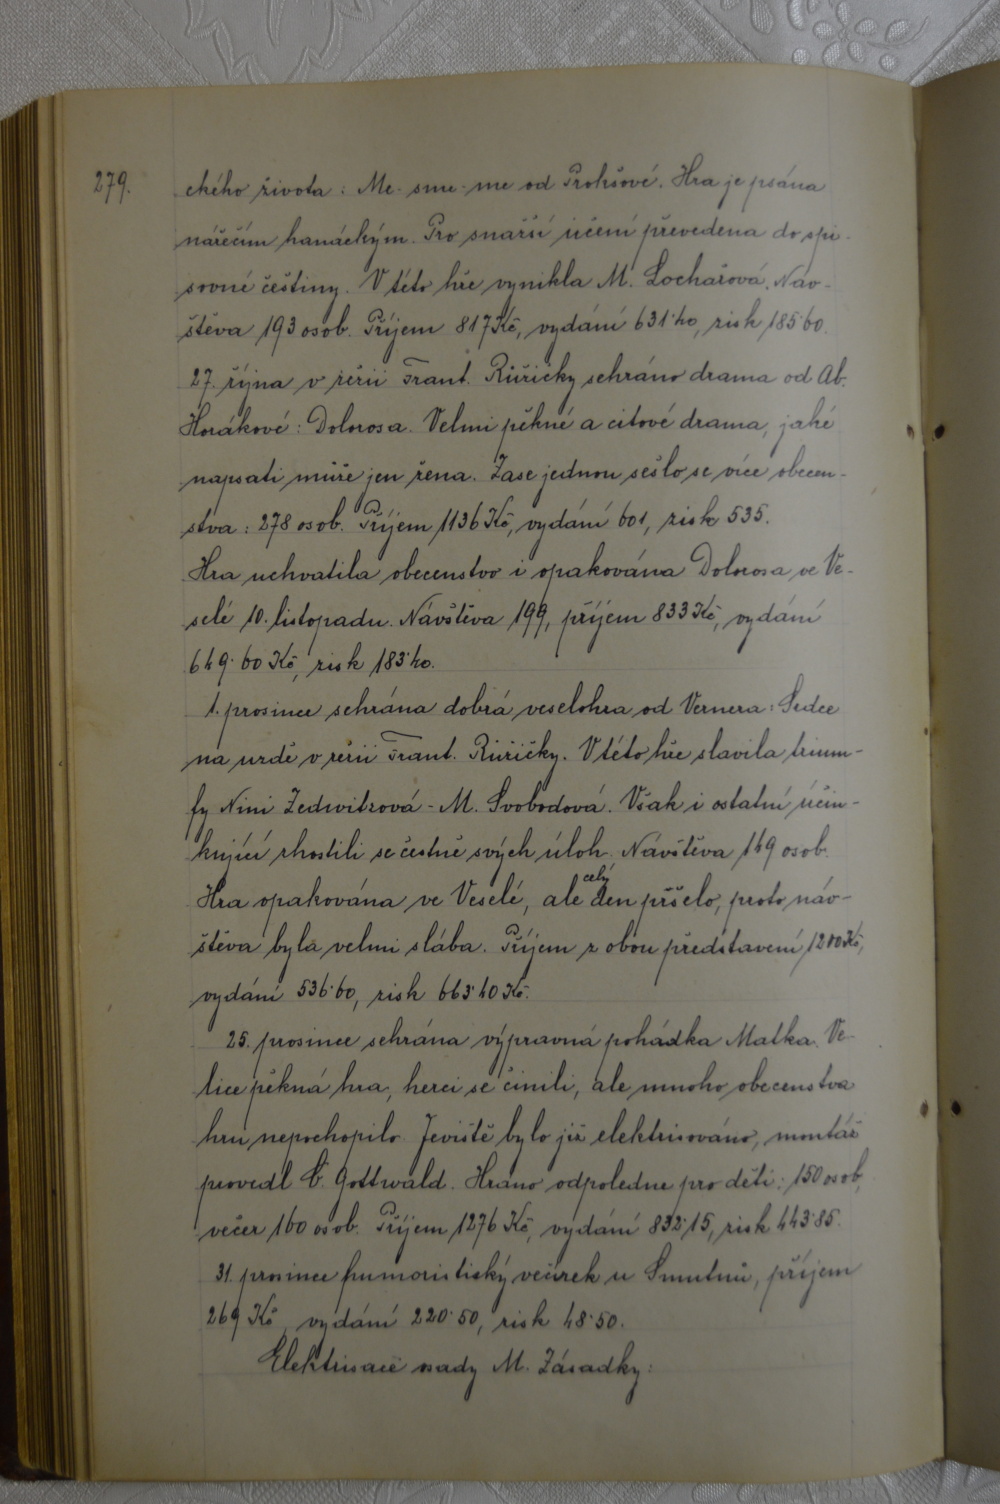 279.
ckého života: Me-sme-me od Prokšové. Hra je psána
nářečím hanáckým. Pro snažší účení převedena do spi-
sovné češtiny. V této hře vynikla M. Lochařová. Náv-
štěva 193 osob. Příjem 817 Kč, vydání 631·40, zisk 185·60.
27. října v režii Frant. Růžičky sehráno drama od Ab.
Horákové: Dolorosa. Velmi pěkné a citové drama, jaké
napsati může jen žena. Zase jednou sešlo se více obecen-
stva: 278 osob. Příjem 1136 Kč, vydání 601, zisk 535.
Hra uchvatila obecenstvo i opakována Dolorosa ve Ve-
selé 10. listopadu. Návštěva 199, příjem 833 Kč, vydání
649·60 Kč, zisk 183·40.
1. prosince sehrána dobrá veselohra od Vernera: Srdce
na uzdě v režii Frant. Růžičky. V této hře slavila trium-
fy Nini Zedwitzová - M. Svobodová. Však i ostatní účin-
kující zhostili se čestně svých úloh. Návštěva 149 osob.
Hra opakována ve Veselé, ale celý den pršelo, proto náv-
štěva byla velmi slába. Příjem z obou představení 1200 Kč,
vydání 536·60, zisk 663·40 Kč.
25. prosince sehrána výpravná pohádka Matka. Ve-
lice pěkná hra, herci se činili, ale mnoho obecenstva
hru nepochopilo. Jeviště bylo již elektrisováno, montáž
provedl Č. Gottwald. Hráno odpoledne pro děti: 150 osob,
večer 160 osob. Příjem 1276 Kč, vydání 832·15, zisk 443·85.
31. prosince humoristiský večírek u Smutnů, příjem
269 Kč, vydání 220·50, zisk 48·50.
Elektrisace osady M. Zásadky: